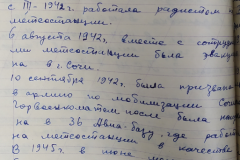 с III - 1942г. работала радистом н
метеостанции.
6 августа 1942г. вместе с сотрудн
ми метеостанции была эваку
на в г. Сочи.
10 сентября 1942г. была призва
в армию по мобилизации Сочи
горвоенкоматом после была напр
на в 36 Авиа-базу, где работ
на метеостанции в качества
В 1945г. в июне мо